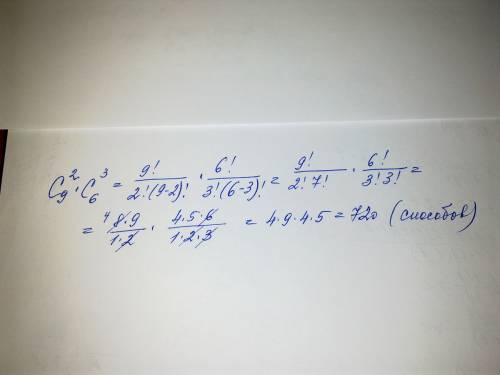 C₉² · C₆³ = 9!/(2!(9-2)!) · 6!/(3!(6-3)!) = 9!/(2!7!) · 6!/(3!3!) =
= ⁴8·9/(1·2) · 4·5·6/(1·2·3) = 4·9·4·5 = 720 (способов)